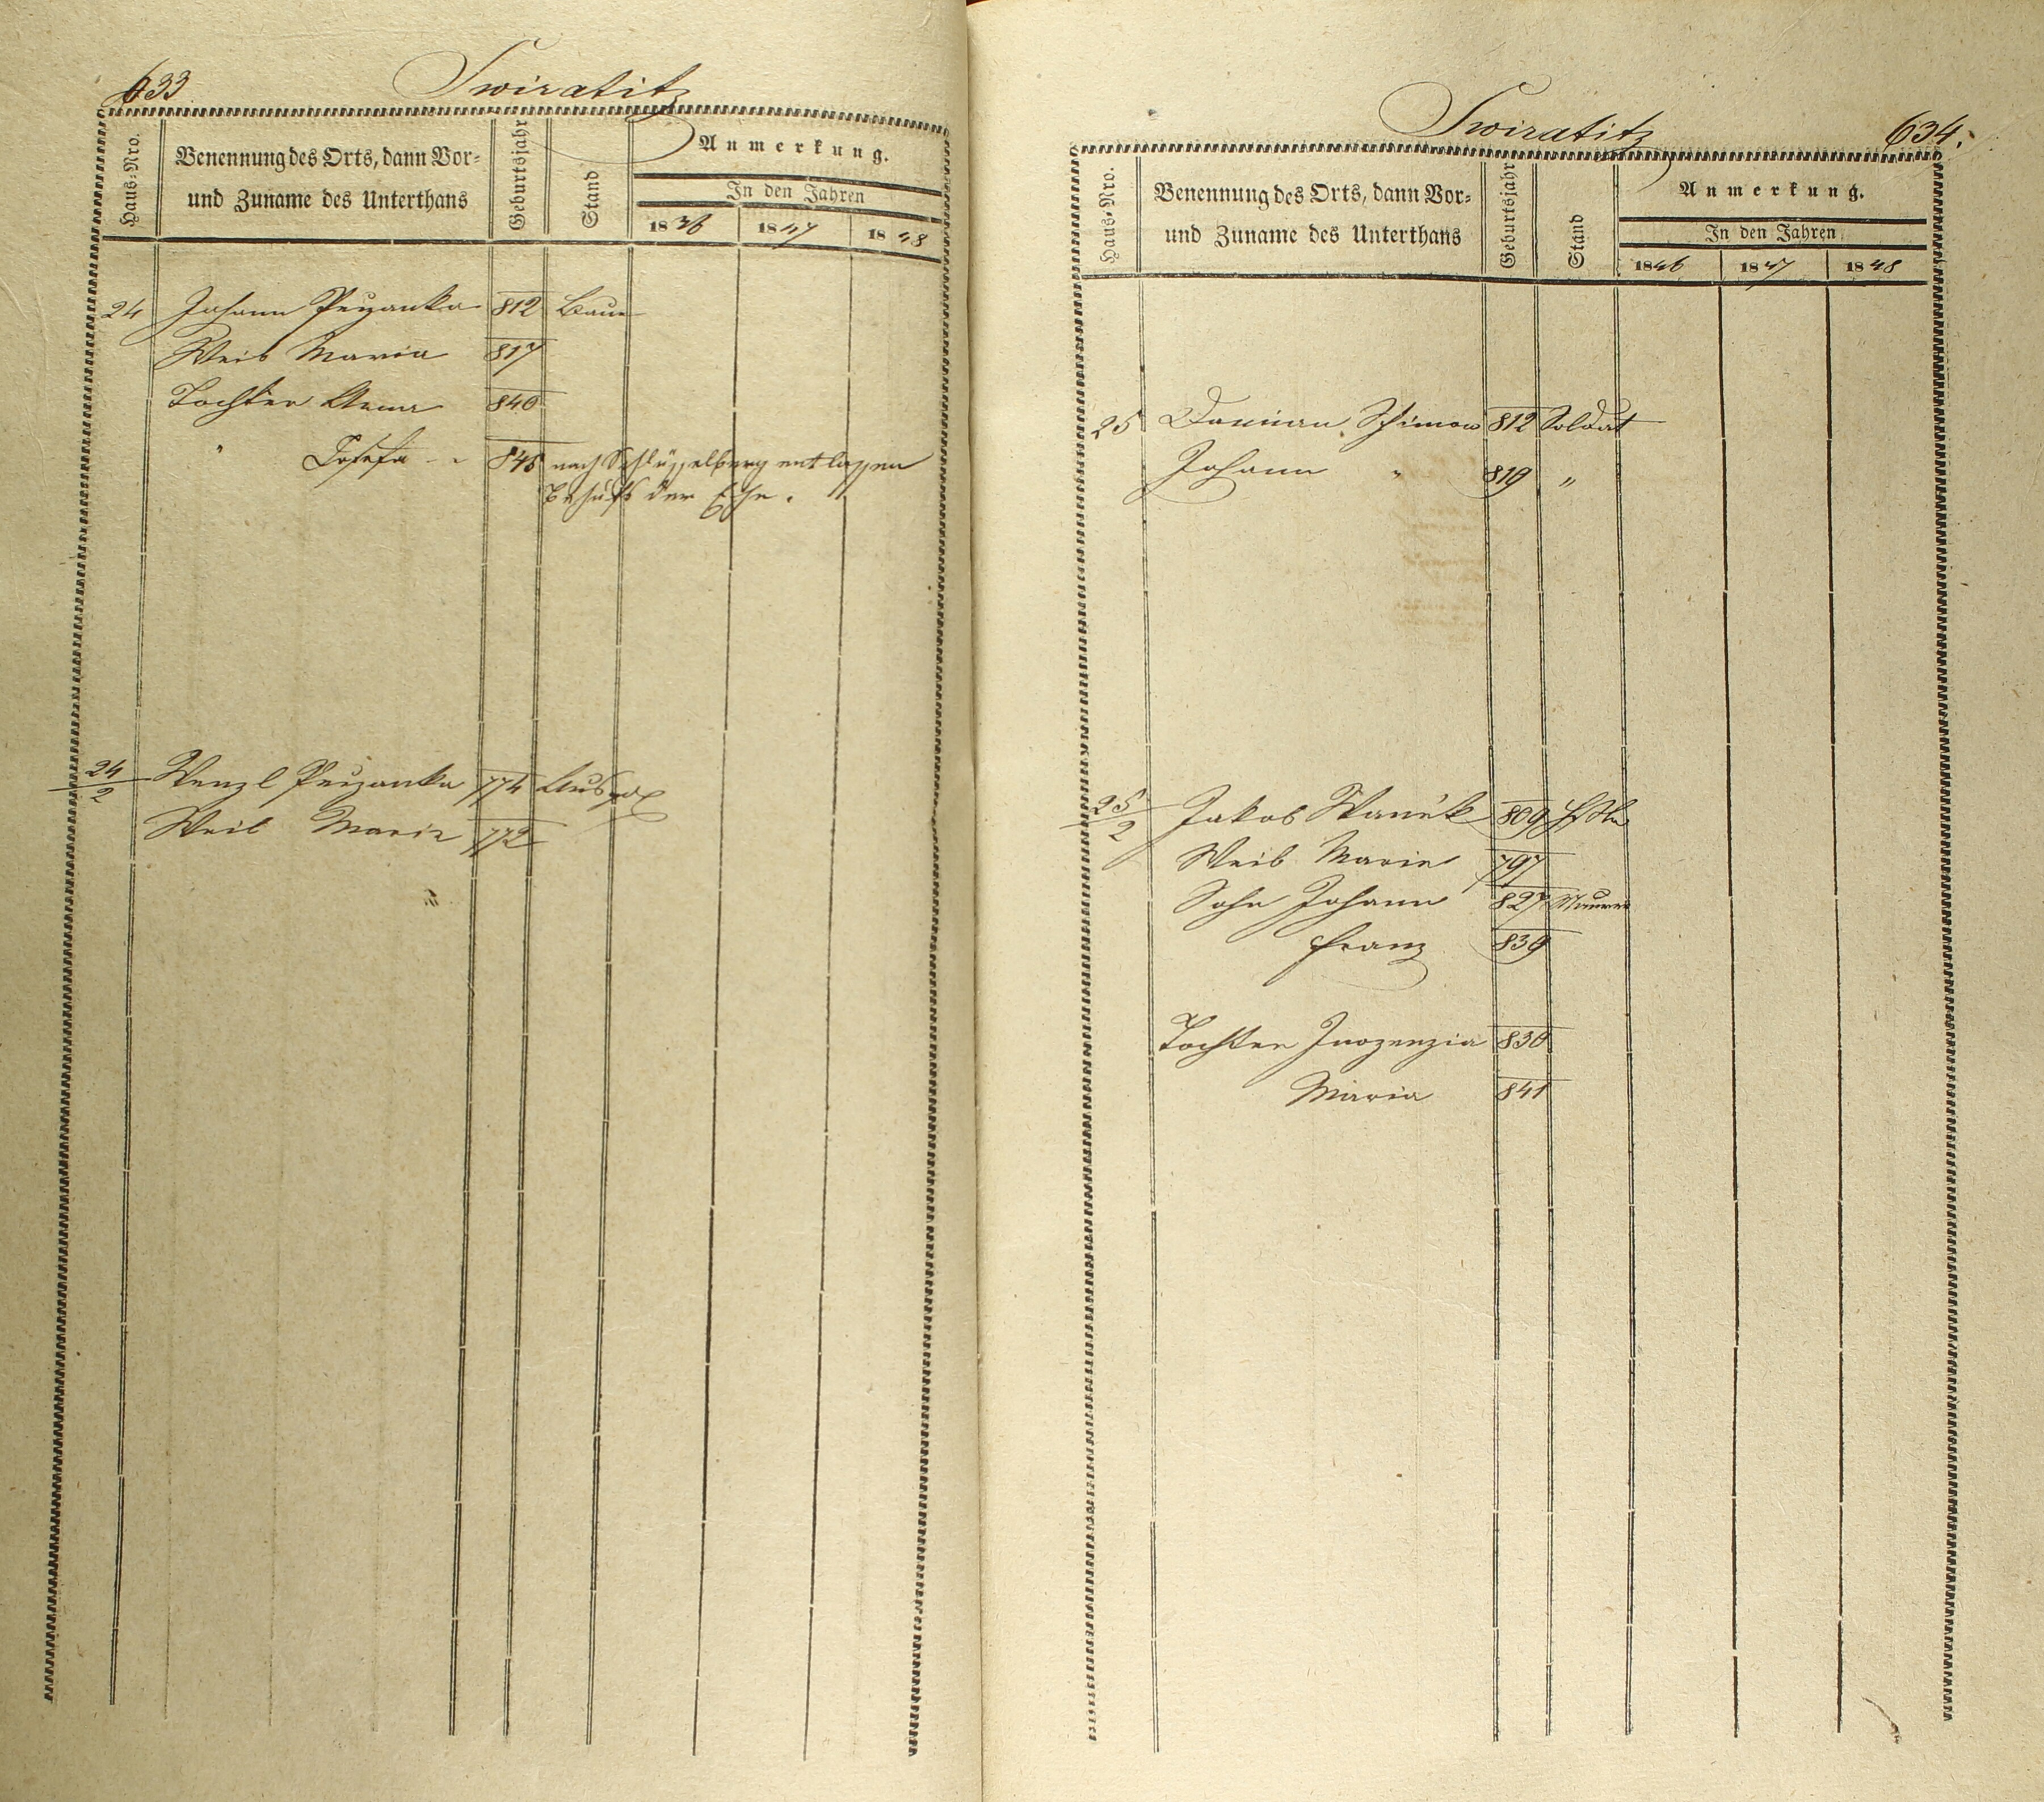 633
Swiratitz
Haus=Nro.
Benennung des Orts, dann Vor=
und Zuname des Unterthans
Geburtsjahr
Stand
Anmerkung.
In den Jahren
1846 1847 1848
24 Johann 812 Bauer
Weib Maria 817
Tochter Anna 840
" Josefa 845 nach Schlüsselburg entlassen
Behufs der Ehe.
24/2 Wenzl 774
Weib Maria 772
Swiratitz
634.
Haus=Nro.
Benennung des Orts, dann Vor=
und Zuname des Unterthans
Geburtsjahr
Stand
Anmerkung.
In den Jahren
1846 1847 1848
25 Damian Schimon 812 Soldat
Johann " 819 "
25/2 Jakob Waněk 809
Weib Maria 797
Sohn Johann 827 Maurer
Franz 839
Tochter Inozenzia 830
Maria 841